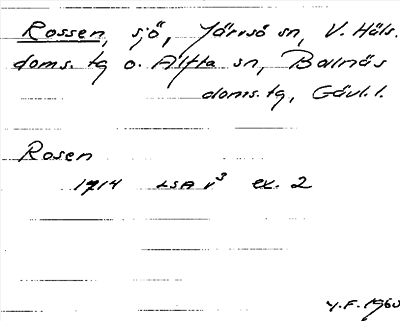 Rossen, sjö, Järvsö sn, V. Häls.
doms. tg o. Alfta sn, Bollnäs
doms. tg, Gävl. l.
Rosen
1714 LSA v³ ex. 2
Y.F. 1960